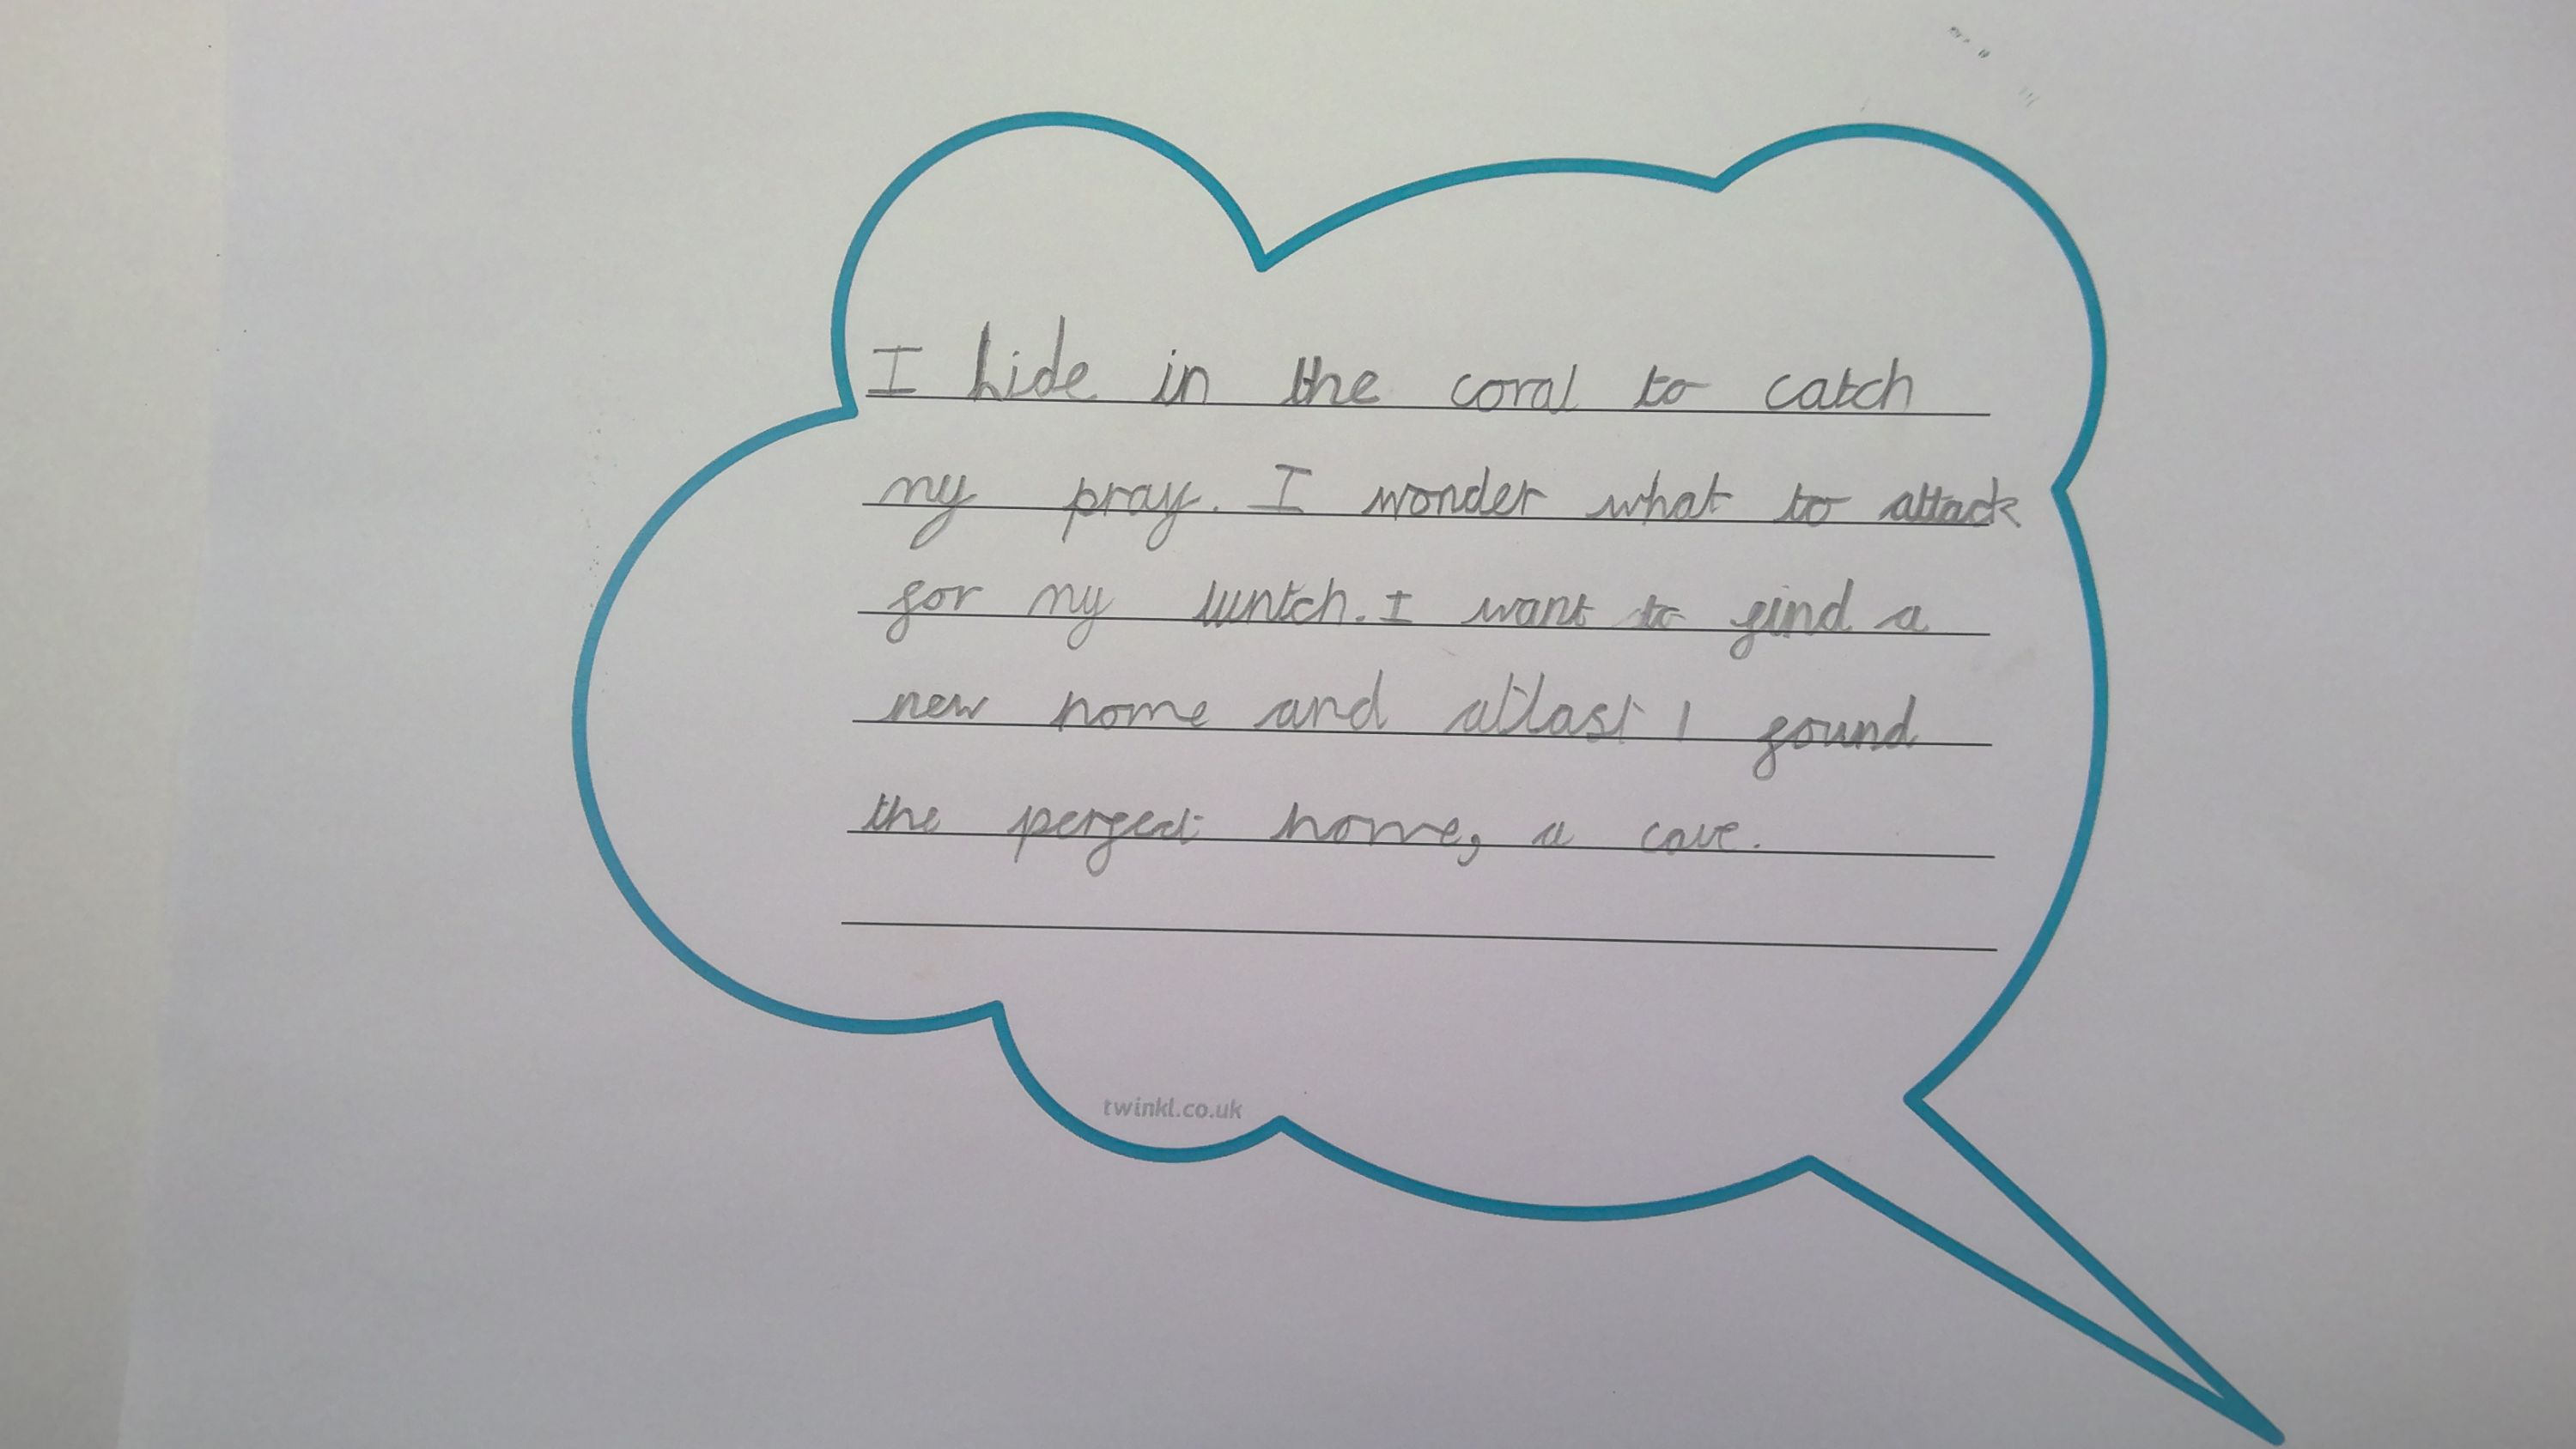 I hide in the coral to catch
my pray. I wonder what to attack
for my luntch. I want to find a
new home and atlast I found
the perfect home, a cave.
twinkl.co.uk